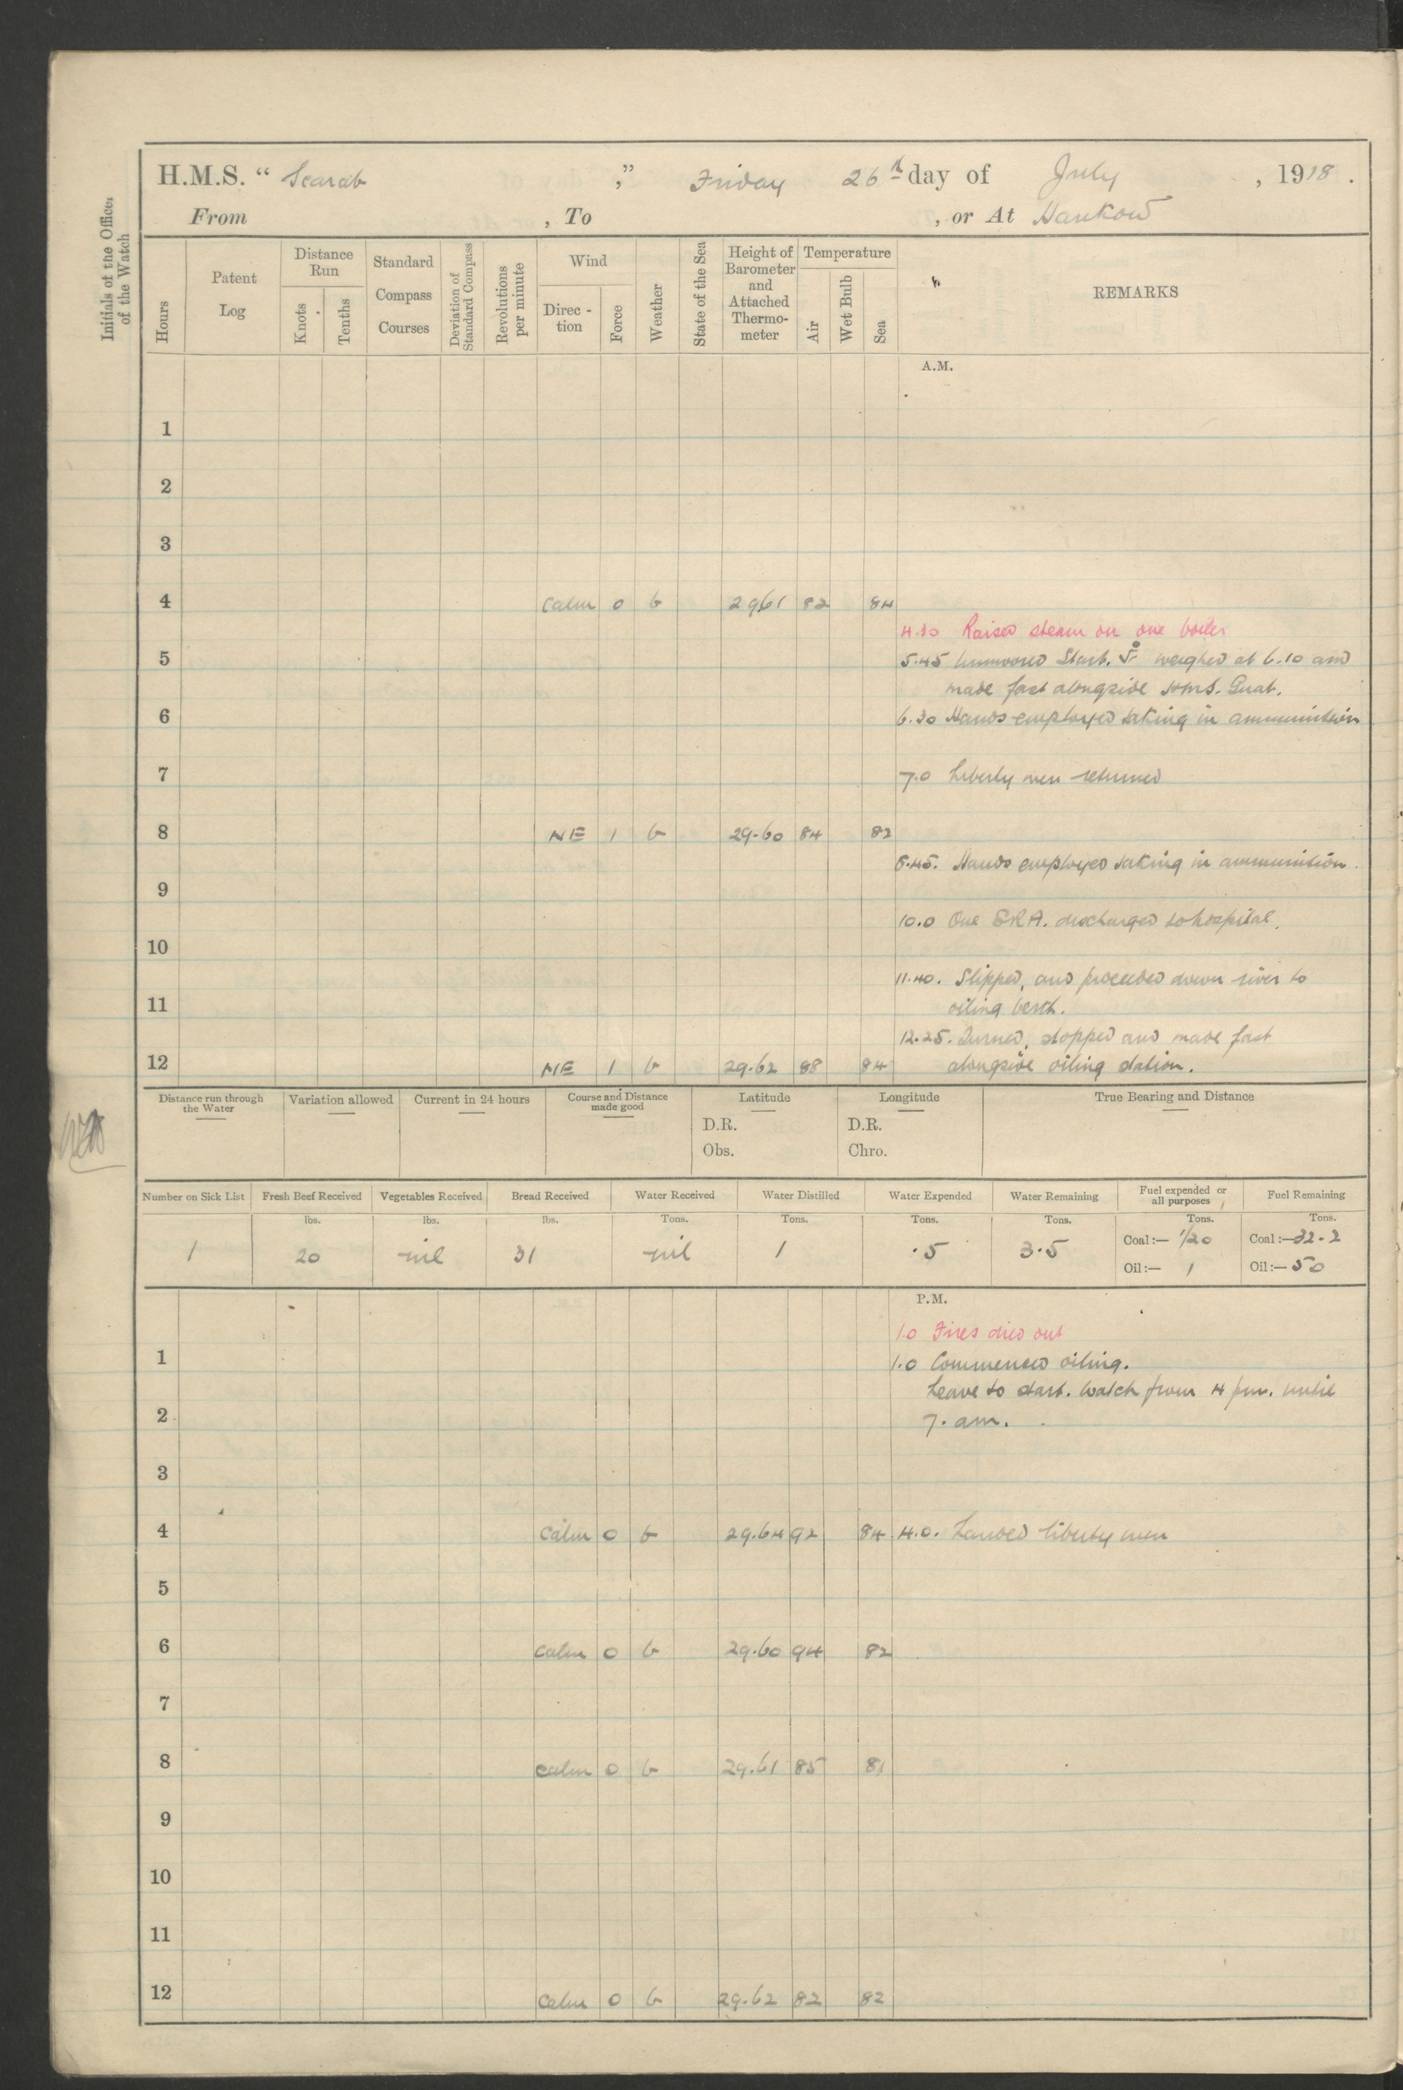 H.M.S. “ Scarab ,” Friday 26th day of July , 1918 .
From , To , or At Hankow
Initials of the Officer of the Watch
Hours
Patent Log
Distance Run
Knots
Tenths
Standard Compass Courses
Deviation of Standard Compass
Revolutions per minute
Wind
Direc-tion
Force
Weather
State of the Sea
Height of Barometer and Attached Thermo-meter
Temperature
Air
Wet Bulb
Sea
REMARKS
A.M.
1
2
3
4 Calm 0 b 29.61 82 84
4.30 Raised steam on one boiler
5
5.45 Unmoored Starb. weighed at 6.10 and
made fast alongside H.M.S. Gnat.
6
6.30 Hands employed taking in ammunition
7
7.0 Liberty men returned
8 NE 1 b 29.60 84 82
8.45. Hands employed taking in ammunition.
9
10.0 One E.R.A. discharged to hospital.
10
11.40. Slipped, and proceeded down river to
11 oiling berth.
12.25. Turned, stopped and made fast
12 NE 1 b 29.62 88 84 alongside oiling station.
Distance run through the Water
Variation allowed
Current in 24 hours
Course and Distance made good
Latitude
D.R.
Obs.
Longitude
D.R.
Chro.
True Bearing and Distance
Number on Sick List
Fresh Beef Received
Vegetables Received
Bread Received
Water Received
Water Distilled
Water Expended
Water Remaining
Fuel expended for all purposes
Fuel Remaining
lbs. lbs. lbs. Tons. Tons. Tons. Tons. Tons. Tons.
1 20 nil 31 nil 1 .5 3.5 Coal:— 1/20 Coal:— 32.2
Oil:— 1 Oil:— 50
P.M.
1.0 Fires died out
1 1.0 Commenced oiling.
Leave to starb. watch from 4 pm. until
2 7. am.
3
4 Calm 0 b 29.64 92 84 4.0. Landed liberty men
5
6 Calm 0 b 29.60 94 82
7
8 Calm 0 b 29.61 85 81
9
10
11
12 Calm 0 b 29.62 82 82